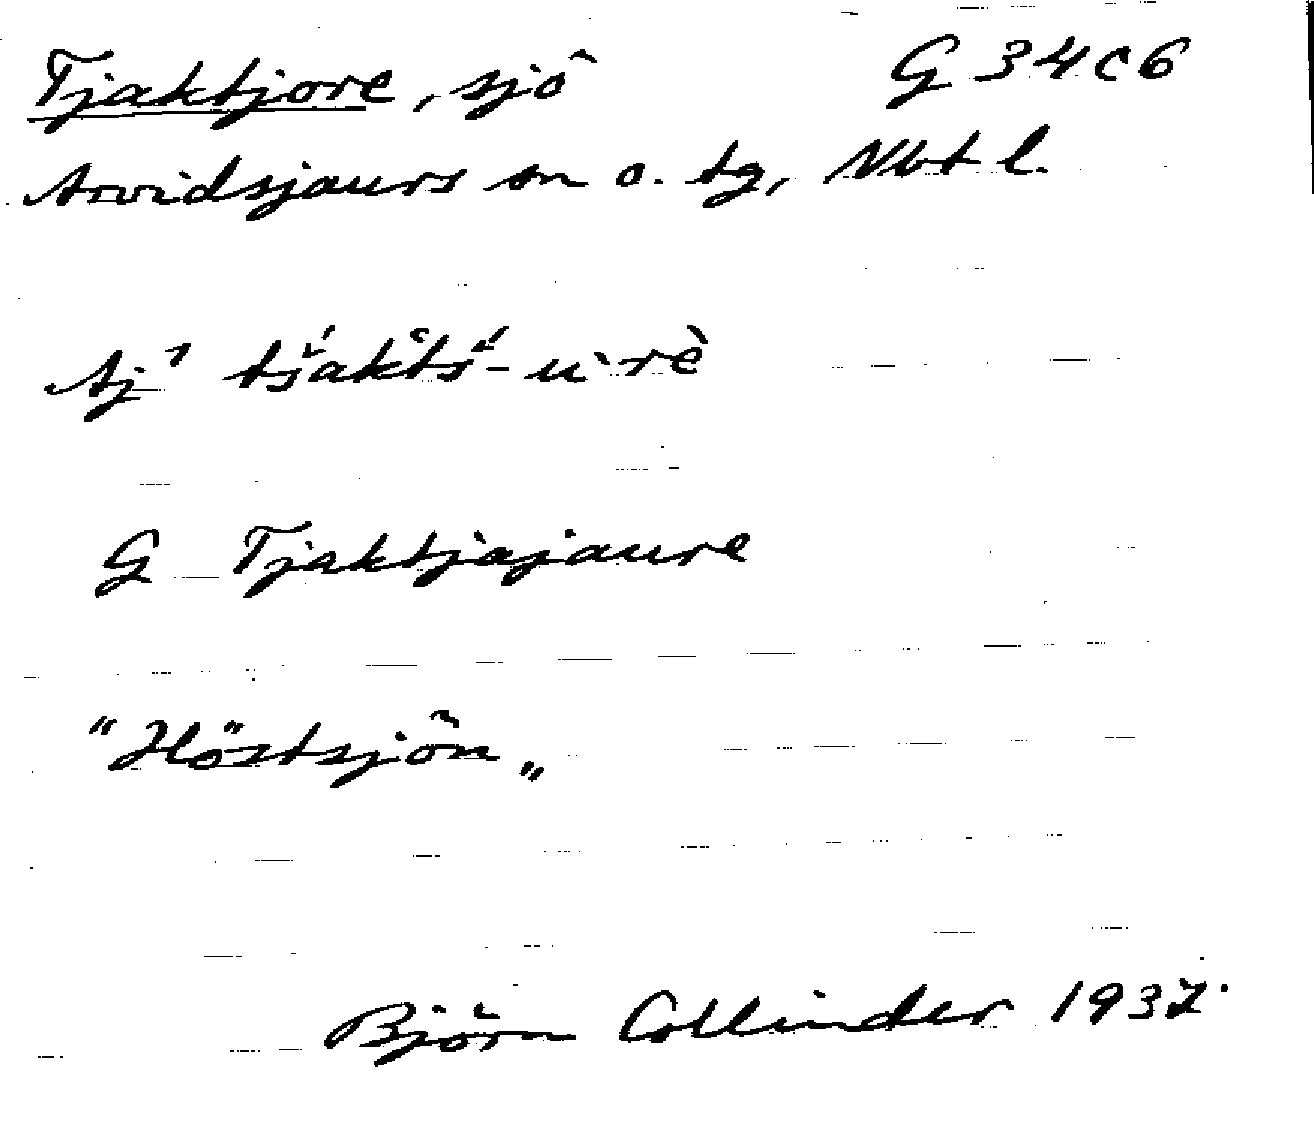 Tjaktjore, sjö G 34 c 6
Arvidsjaurs sn o. tg, Nbt l.
Aj¹ tš́akt̊š́-u`rè
G Tjaktjajaure
"Höstsjön„
Björn Collinder 1937.